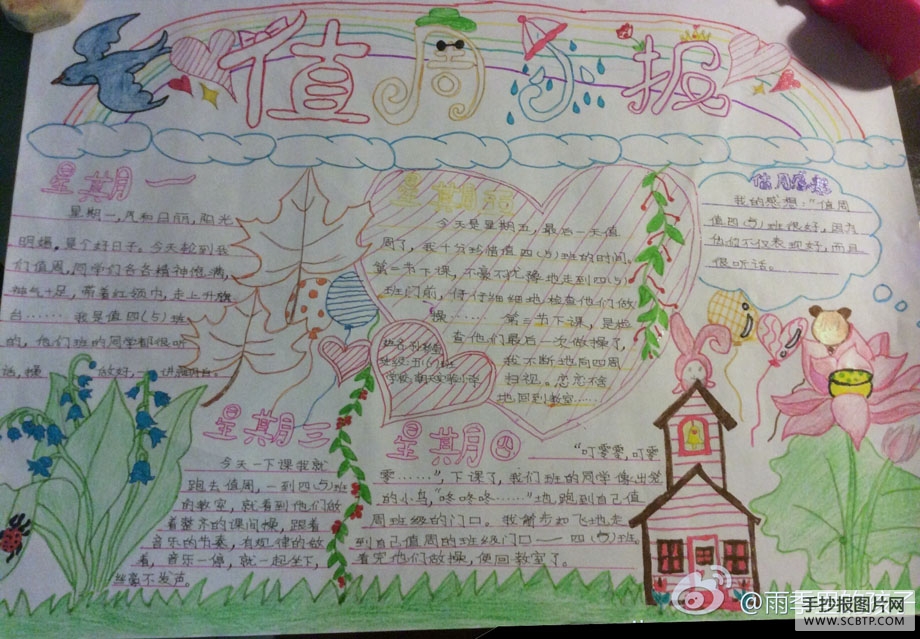 值周小报
星期一
星期一,风和日丽,阳光
明媚,是个好日子。今天轮到我
们值周,同学们各各精神饱满,
神气十足,带着红领巾,走上升旗
台……我是值四(5)班
的,他们班的同学都很听
话,操 做好,
星期五
今天是星期五,最后一天值
周了,我十分珍惜值四(5)班的时间。
第一节下课,不毫不犹豫地走到四(5)
班门前,仔仔细细地检查他们做
操…… 第二节下课,是检
查他们最后一次做操了,
我不断地向四周
扫视。恋恋不舍
地回到教室……
值周感想
我的感想:“值周
值四(5)班很好,因为
他们不仅表现好,而且
很听话。
姓名:
班级:五(6)班
学校:
星期三
今天一下课我就
跑去值周,一到四(5)班
的教室,就看到他们做
着整齐的课间操,跟着
音乐的节奏,有规律的做
着,音乐一停,就一起坐下,
丝毫不发声。
星期四
“叮零零,叮零
零……”,下课了,我们班的同学像出笼
的小鸟,“咚咚咚……”地跑到自己值
周班级的门口。我箭步如飞地走
到自己值周的班级门口——四(5)班,
看完他们做操,便回教室了。
手抄报图片网
WWW.SCBTP.COM